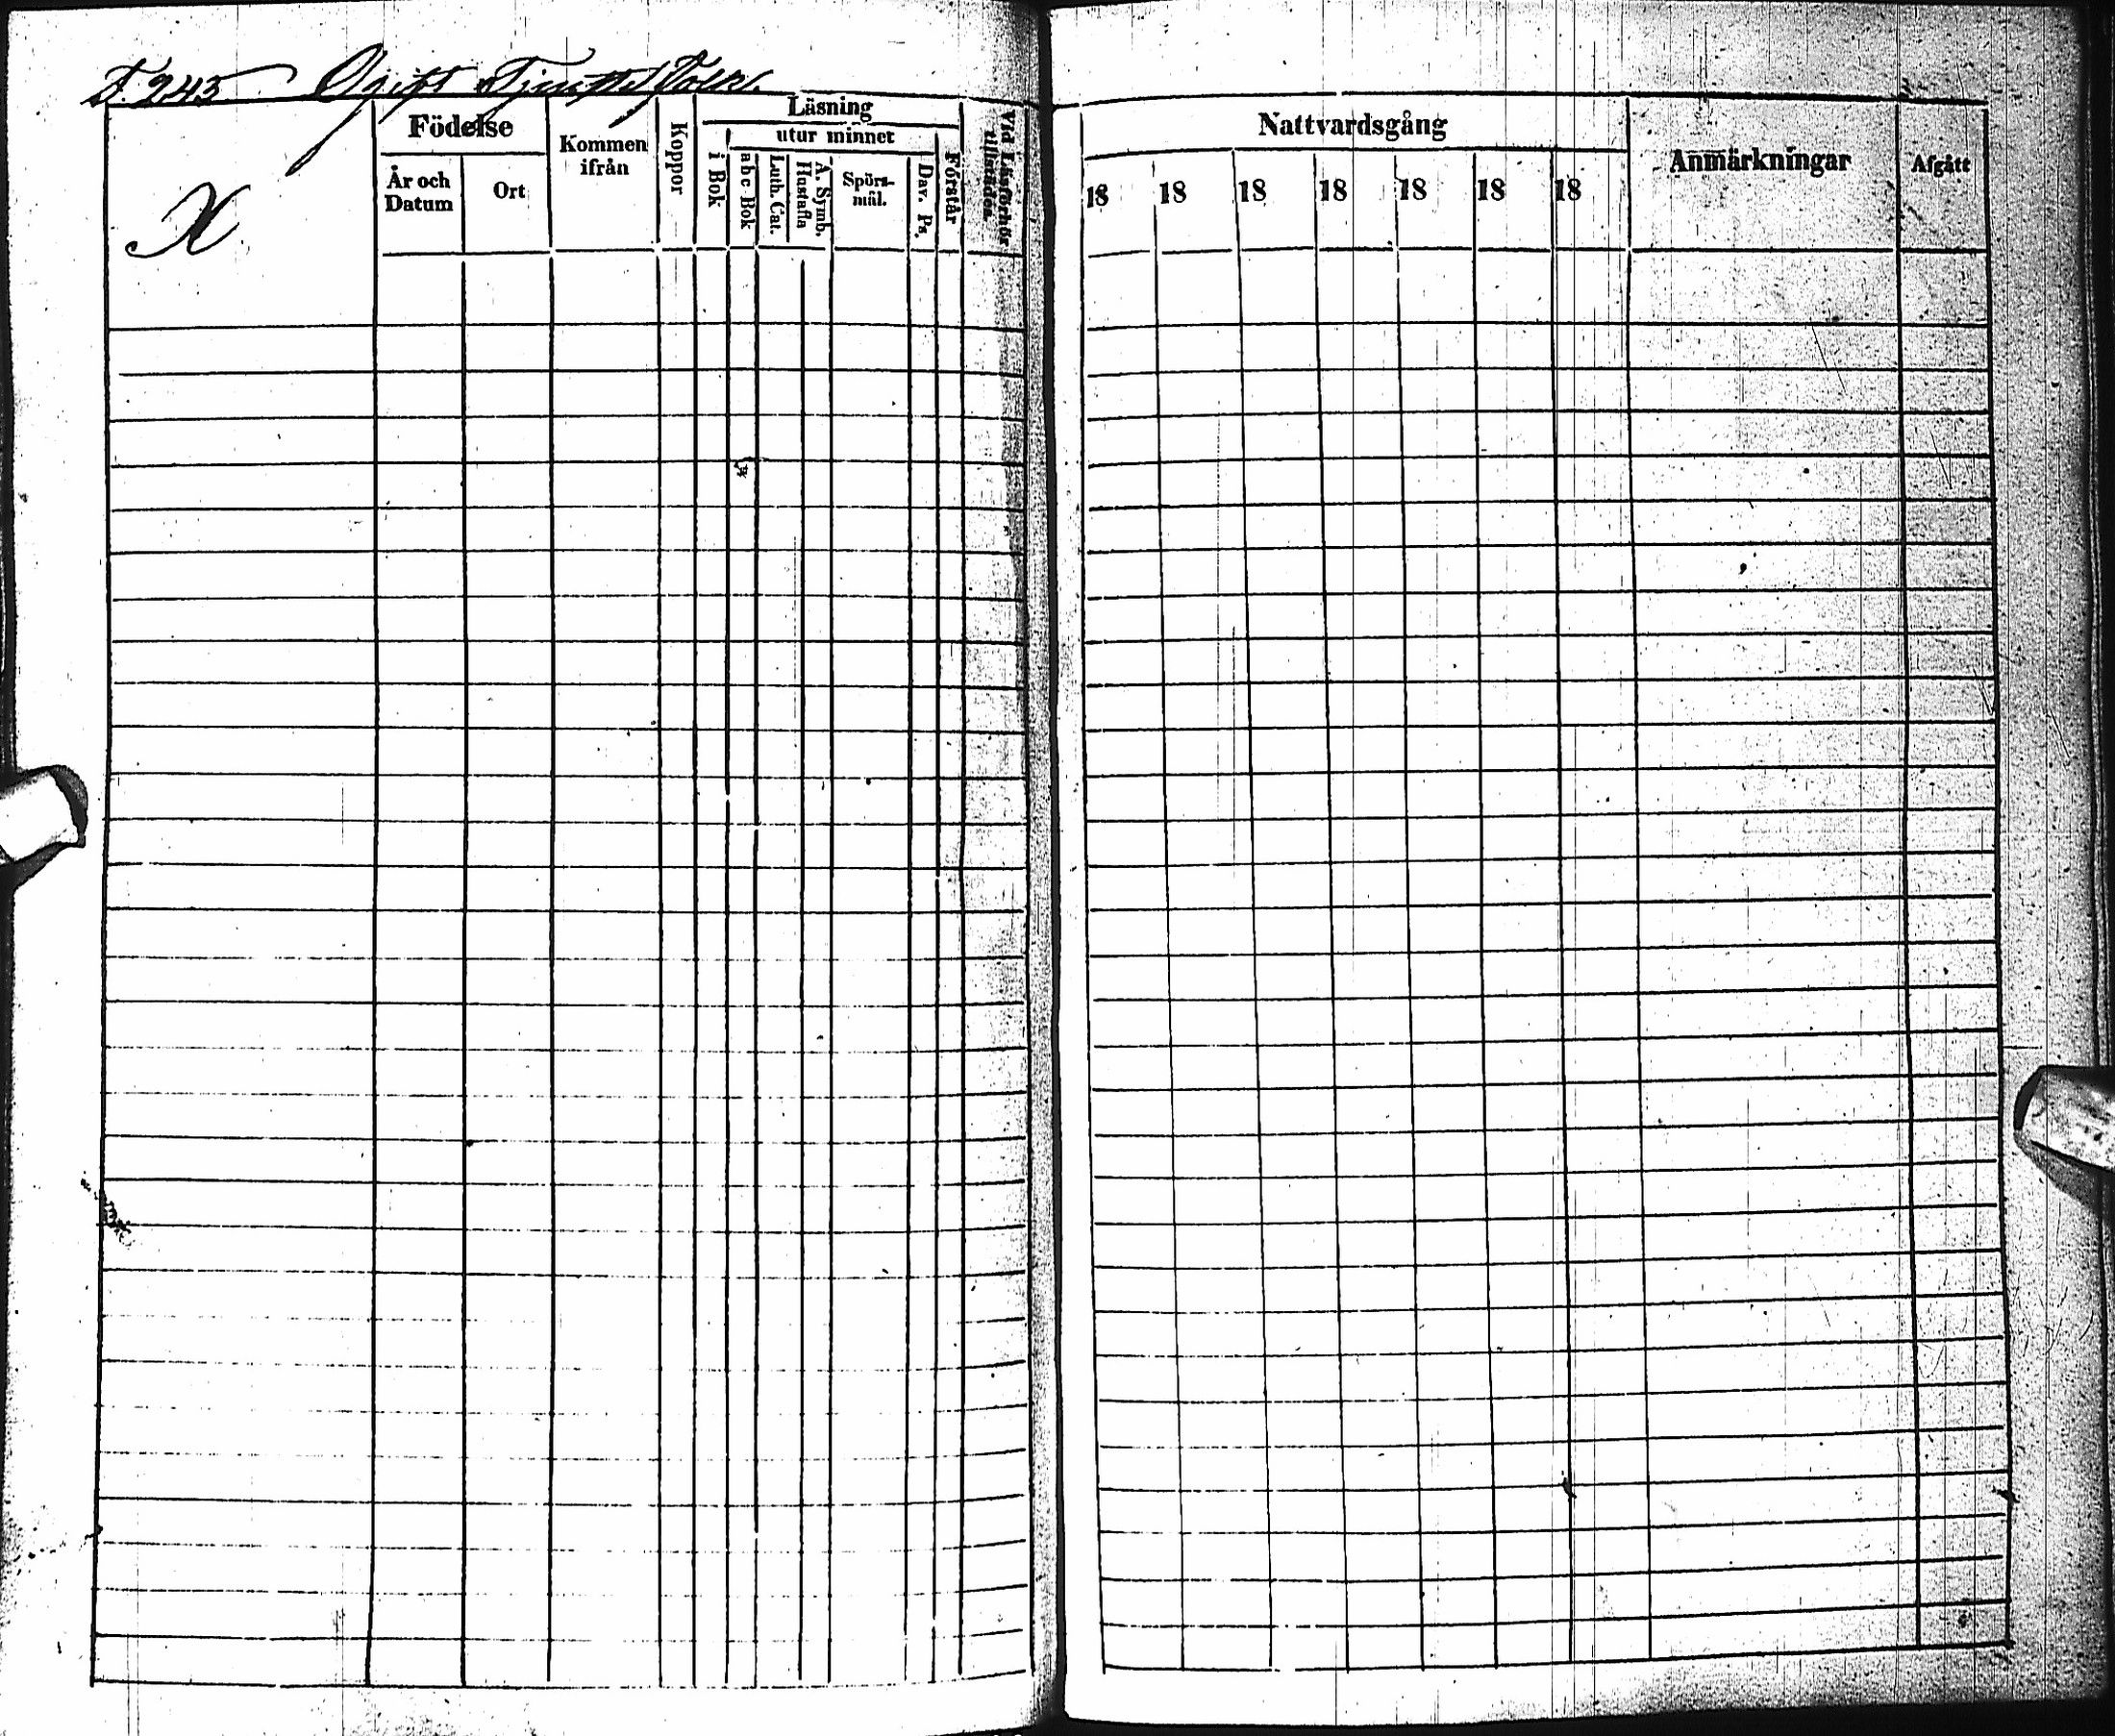 F. 245 Ogift Tjenstefolk.
X
Födelse
År och Datum
Ort
Kommen ifrån
Koppor
Läsning
utur minnet
i Bok
abc Bok
Luth. Cat.
Hustafla
A. Symb.
Spörs-
mål.
Dav. Ps.
Förstår
Vid Läsförhör tillstädes
Nattvardsgång
18 18 18 18 18 18 18
Anmärkningar
Afgått